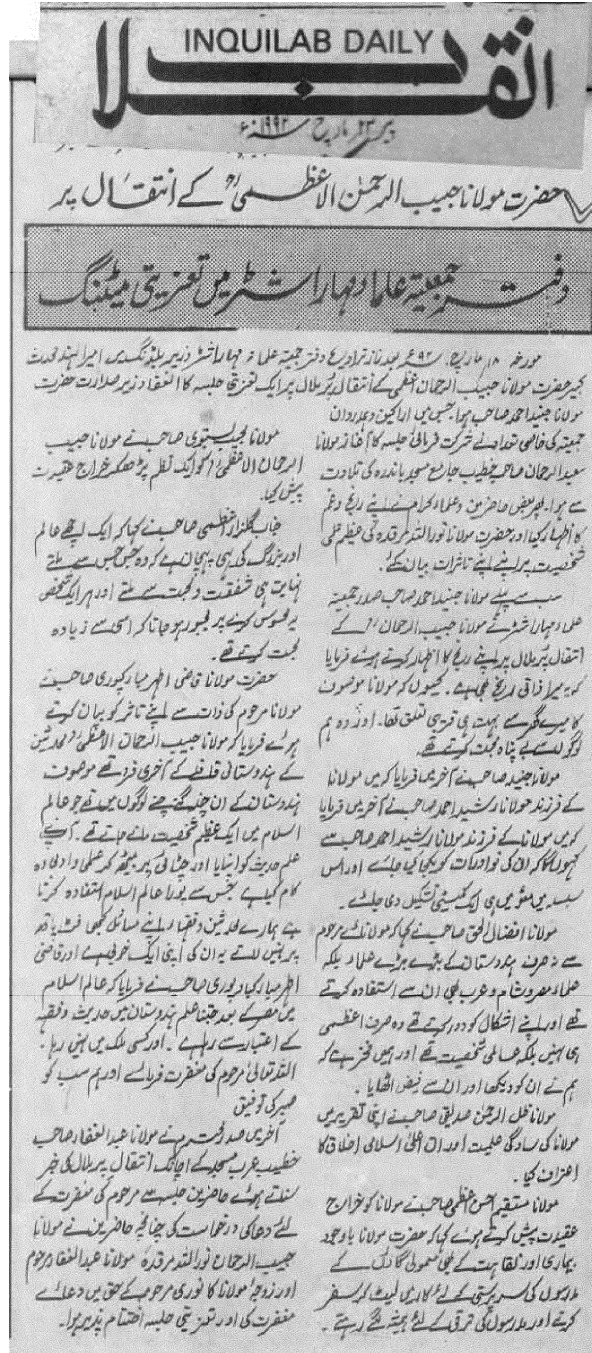 انقلاب
INQUILAB DAILY
پیر ۲۳ مارچ ۱۹۹۲ء
حضرت مولانا حبیب الرحمٰن الاعظمیؒ کے انتقال پر
دفتر جمعیۃ علماء مہاراشٹر میں تعزیتی میٹنگ
مورخہ ۱۸ مارچ ۹۲ء بعد نماز تراویح دفتر جمعیۃ علماء مہاراشٹر وزیر بلڈنگ میں امیر الہند محدث
کبیر حضرت مولانا حبیب الرحمان اعظمی کے انتقال پر ملال پر ایک تعزیتی جلسہ کا انعقاد زیر صدارت حضرت
مولانا جنید احمد صاحب ہوا، جس میں اراکین و ہمدردان
جمعیۃ کی خاصی تعداد نے شرکت فرمائی جلسہ کا آغاز مولانا
سعید الرحمان صاحب خطیب جامع مسجد باندرہ کی تلاوت
سے ہوا۔ پھر بعض حاضرین و علماء کرام نے اپنے رنج و غم
کا اظہار کیا اور حضرت مولانا نور اللہ مرقدہ کی عظیم علمی
شخصیت پر اپنے اپنے تاثرات بیان کئے۔
سب سے پہلے مولانا جنید احمد صاحب صدر جمعیۃ
علماء مہاراشٹر نے مولانا حبیب الرحمانؒ کے
انتقال پر ملال پر اپنے رنج کا اظہار کرتے ہوئے فرمایا
کہ یہ میرا ذاتی رنج بھی ہے۔ کیوں کہ مولانا موصوف
کا میرے گھر سے بہت ہی قریبی تعلق تھا۔ اور وہ ہم
لوگوں سے بے پناہ محبت کرتے تھے۔
مولانا جنید صاحب نے آخر میں فرمایا کہ میں مولانا
کے فرزند مولانا رشید احمد صاحب نے آخر میں فرمایا
کہ میں مولانا کے فرزند مولانا رشید احمد صاحب سے
کہوں گا کہ ان کی نوادرات کو یکجا کیا جائے اور اس
سلسلہ میں مئو میں ہی ایک کمیٹی تشکیل دی جائے۔
مولانا افضال الحق صاحب نے کہا کہ مولانائے مرحوم
سے نہ صرف ہندوستان کے بڑے بڑے علماء بلکہ
علماء مصر و شام و عرب بھی ان سے استفادہ کرتے
تھے اور اپنے اشکال کو دور کرتے تھے وہ صرف اعظمی
ہی نہیں بلکہ عالمی شخصیت تھے اور ہمیں فخر ہے کہ
ہم نے ان کو دیکھا اور ان سے فیض اٹھایا۔
مولانا ظل الرحمٰن صدیقی صاحب نے اپنی تقریر میں
مولانا کی سادگی علمیت اور ان کے اعلیٰ اسلامی اخلاق کا
اعتراف کیا۔
مولانا مستقیم احسن اعظمی صاحب نے مولانا کو خراج
عقیدت پیش کرتے ہوئے کہا کہ حضرت مولانا باوجود
بیماری اور نقاہت کے بھی معمولی گاؤں کے
مدرسوں کی سرپرستی کے لئے کار میں لیٹ کر سفر
کرتے اور مدرسوں کی ترقی کے لئے ہمیشہ لگے رہتے۔
مولانا نجیب بستوی صاحب نے مولانا حبیب
الرحمان الاعظمیؒ کو ایک نظم پڑھ کر خراج عقیدت
پیش کیا۔
جناب گلزار اعظمی صاحب نے کہا کہ ایک اچھے عالم
اور بزرگ کی یہی پہچان ہے کہ وہ جس جس سے ملتے
نہایت ہی شفقت و محبت سے ملتے اور ہر ایک شخص
یہ محسوس کرنے پر مجبور ہو جاتا کہ اسی سے زیادہ
محبت کرتے تھے۔
حضرت مولانا قاضی اطہر مبارکپوری صاحب نے
مولانا مرحوم کی ذات سے اپنے تاثر کو بیان کرتے
ہوئے فرمایا کہ مولانا حبیب الرحمان الاعظمیؒ محدثین
کے ہندوستانی قافلے کے آخری فرد تھے موصوف
ہندوستان کے ان چند گنے چنے لوگوں میں تھے جو عالم
اسلام میں ایک عظیم شخصیت مانے جاتے تھے۔ آپ نے
علم حدیث کو اپنایا اور چٹائی پر بیٹھ کر علمی وادی وہ
کام کیا ہے جس سے پورا عالم اسلام استفادہ کرتا
ہے ہمارے محدثین و فقہاء اپنے مسائل کبھی فٹ پاتھ
پر نہیں لائے یہ ان کی اپنی ایک خوبی ہے اور قاضی
اطہر مبارکپوری صاحب نے فرمایا کہ عالم السلام
میں مصر کے بعد جتنا علم ہندوستان میں حدیث و فقہہ
کے اعتبار سے رہا ہے۔ اور کسی ملک میں نہیں رہا۔
اللہ تعالیٰ مرحوم کی مغفرت فرمائے اور ہم سب کو
صبر کی توفیق
آخر میں صدر محترم نے مولانا عبد الغفار صاحب
خطیب عرب مسجد کے اچانک انتقال پر ملال کی خبر
سناتے ہوئے حاضرین جلسہ سے مرحوم کی مغفرت کے
لئے دعا کی درخواست کی چنانچہ حاضرین نے مولانا
حبیب الرحمان نور اللہ مرقدہ مولانا عبد الغفار مرحوم
اور زوجہ مولانا کانوری مرحومہ کے حق میں دعائے
مغفرت کی اور تعزیتی جلسہ اختتام پذیر ہوا۔